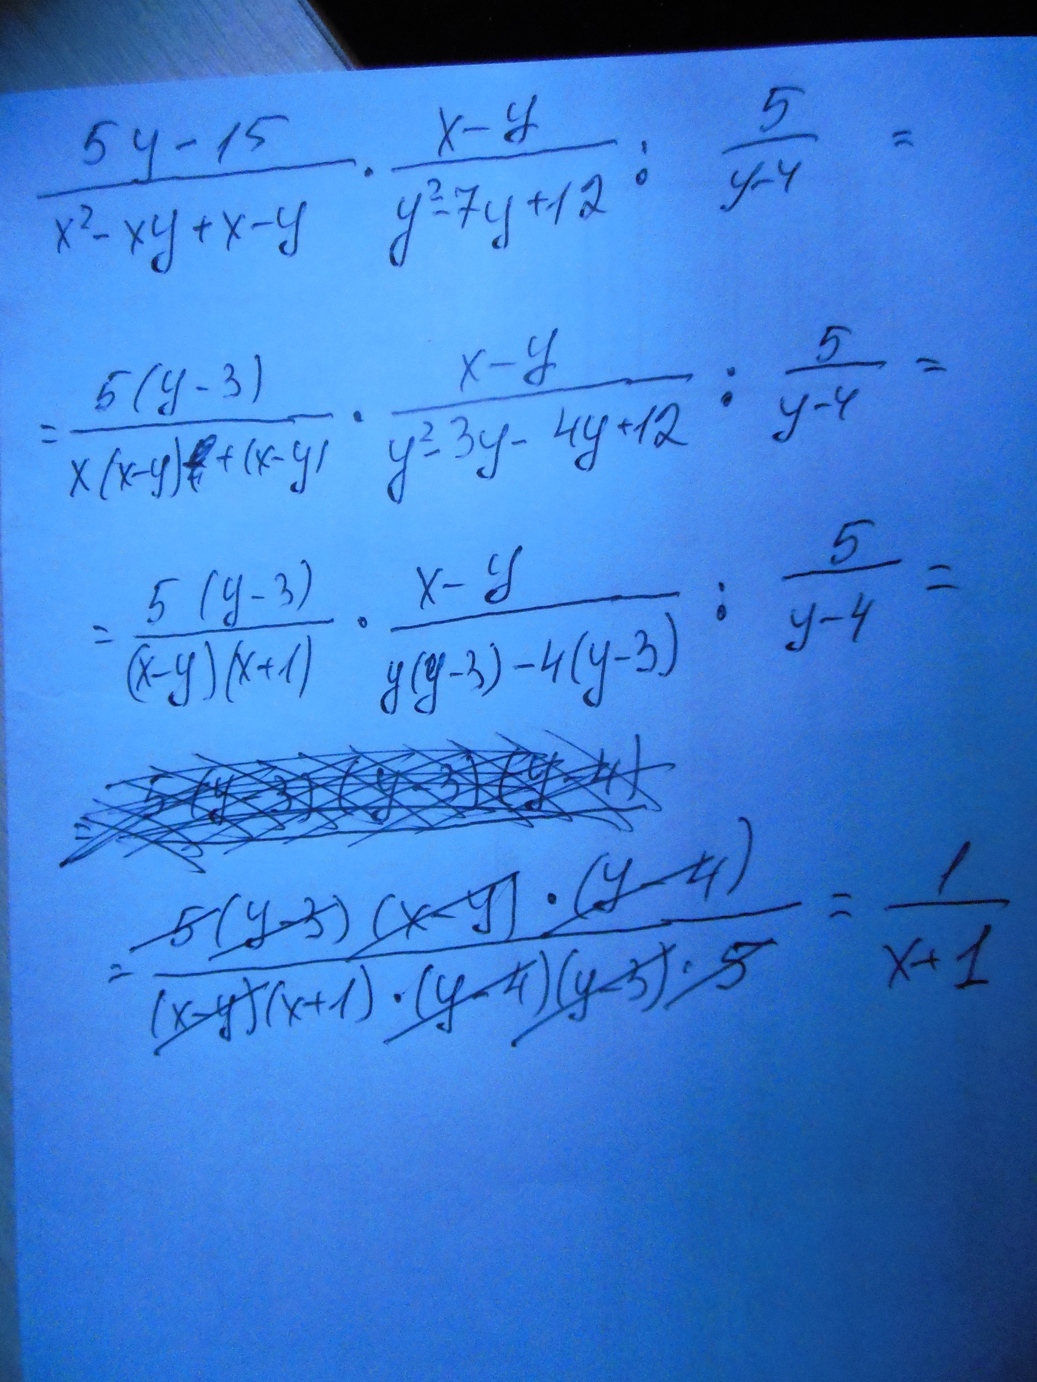 (5y-15)/(x²-xy+x-y) · (x-y)/(y²-7y+12) : 5/(y-4) =
= 5(y-3)/(x(x-y)+(x-y)) · (x-y)/(y²-3y-4y+12) : 5/(y-4) =
= 5(y-3)/((x-y)(x+1)) · (x-y)/(y(y-3)-4(y-3)) : 5/(y-4) =
= 5(y-3)(y-3)(y-4)
= 5(y-3)(x-y)·(y-4)/((x-y)(x+1)·(y-4)(y-3)·5) = 1/(x+1)